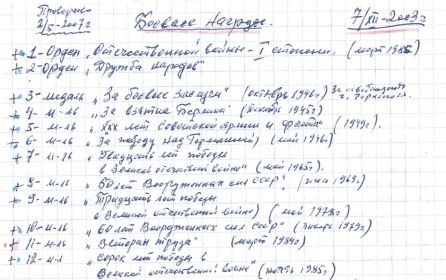 Проверено
2/5-2007г
Боевые Награды. 7/XII-2003г
+ 1-Орден „Отечественной войны-I степени. (март 1985
+ 2-Орден „Дружба народов"
+ 3-медаль „За боевые заслуги" (октябрь 1946г)
+ 4-м-ль „За взятие Берлина (декабрь 1945г)
+ 5-м-ль „XXX лет Советской армии и флота" (1949г.)
+ 6-м-ль „За победу над Германией) (май 1946г)
+ 7-м-ль „Двадцать лет победы
в Великой отечественной войне" (май 1965г).
+ 8-м-ль „50 лет Вооруженных сил СССР. 1969г.
+ 9-м-ль „Тридцать лет победы
в Великой отечественной войне) (май 1978г)
+ 10-м-ль „60 лет Вооруженных сил СССР" (январь 1979г)
+ 11-м-ль „Ветеран труда" (март 1984г)
+ 12-м-ль „Сорок лет победы в
Великой отечественной войне" 1985г.